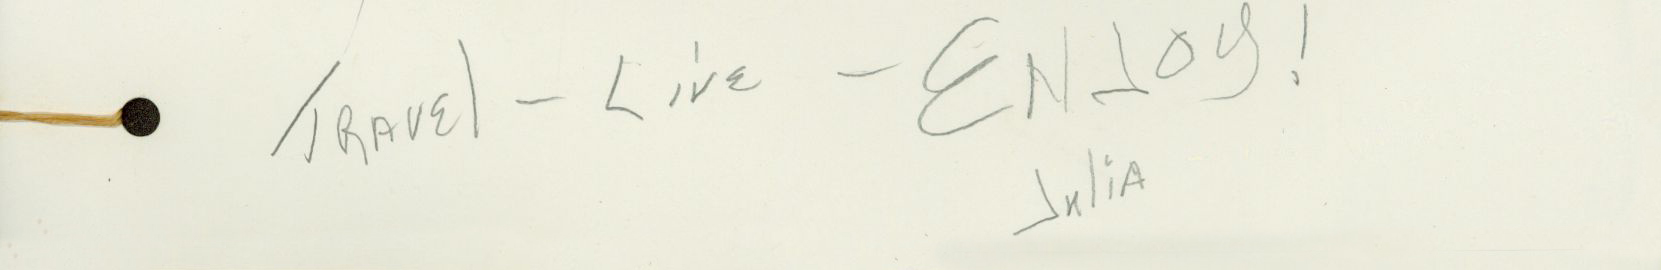 TRAVEl - LiVE - ENJOY!
JuliA